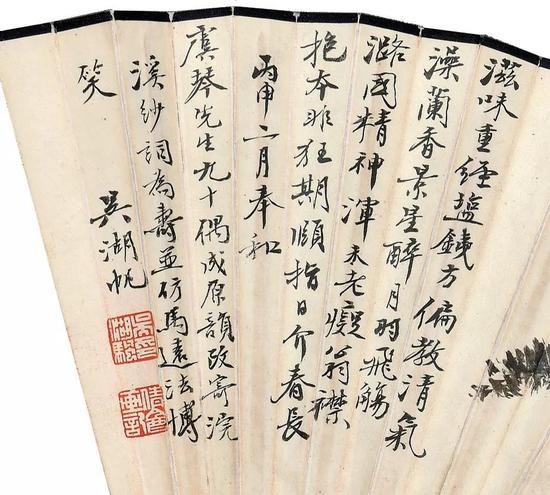 滋味重經鹽銕方偏教清氣
澡蘭香景星醉月羽飛觴
潞國精神渾未老瘦翁襟
抱本非狂期頤指日介春長
丙申二月奉和
虞琴先生九十偶成原韻改寄浣
溪紗詞為壽並仿馬遠法博
笑
吳湖帆